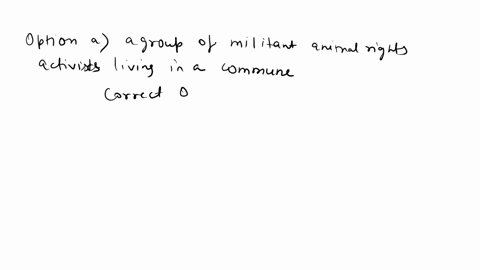 Option a) a group of militant animal rights
activists living in a commune
Correct O